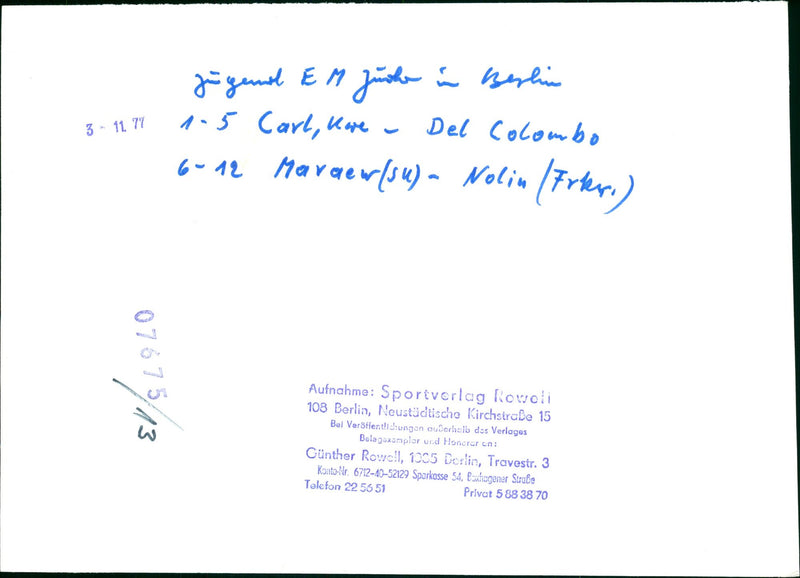 Jugend EM Judo in Berlin
3-11.77
1-5 Carl, Uwe - Del Colombo
6-12 Maraew (SU) - Nolin (Frkr.)
07675/13
Aufnahme: Sportverlag Rowell
108 Berlin, Neustädtische Kirchstraße 15
Bei Veröffentlichungen außerhalb des Verlages
Belegexemplar und Honorar an:
Günther Rowell, 1035 Berlin, Travestr. 3
Konto-Nr. 6712-40-52129 Sparkasse 54, Boxhagener Straße
Telefon 22 56 51 Privat 5 88 38 70